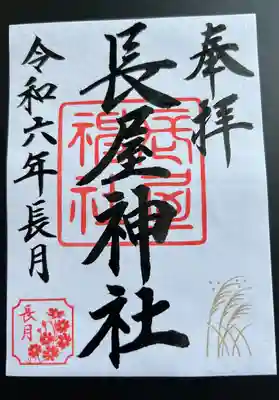 奉拝
長屋神社
令和六年長月
長屋神社
長月